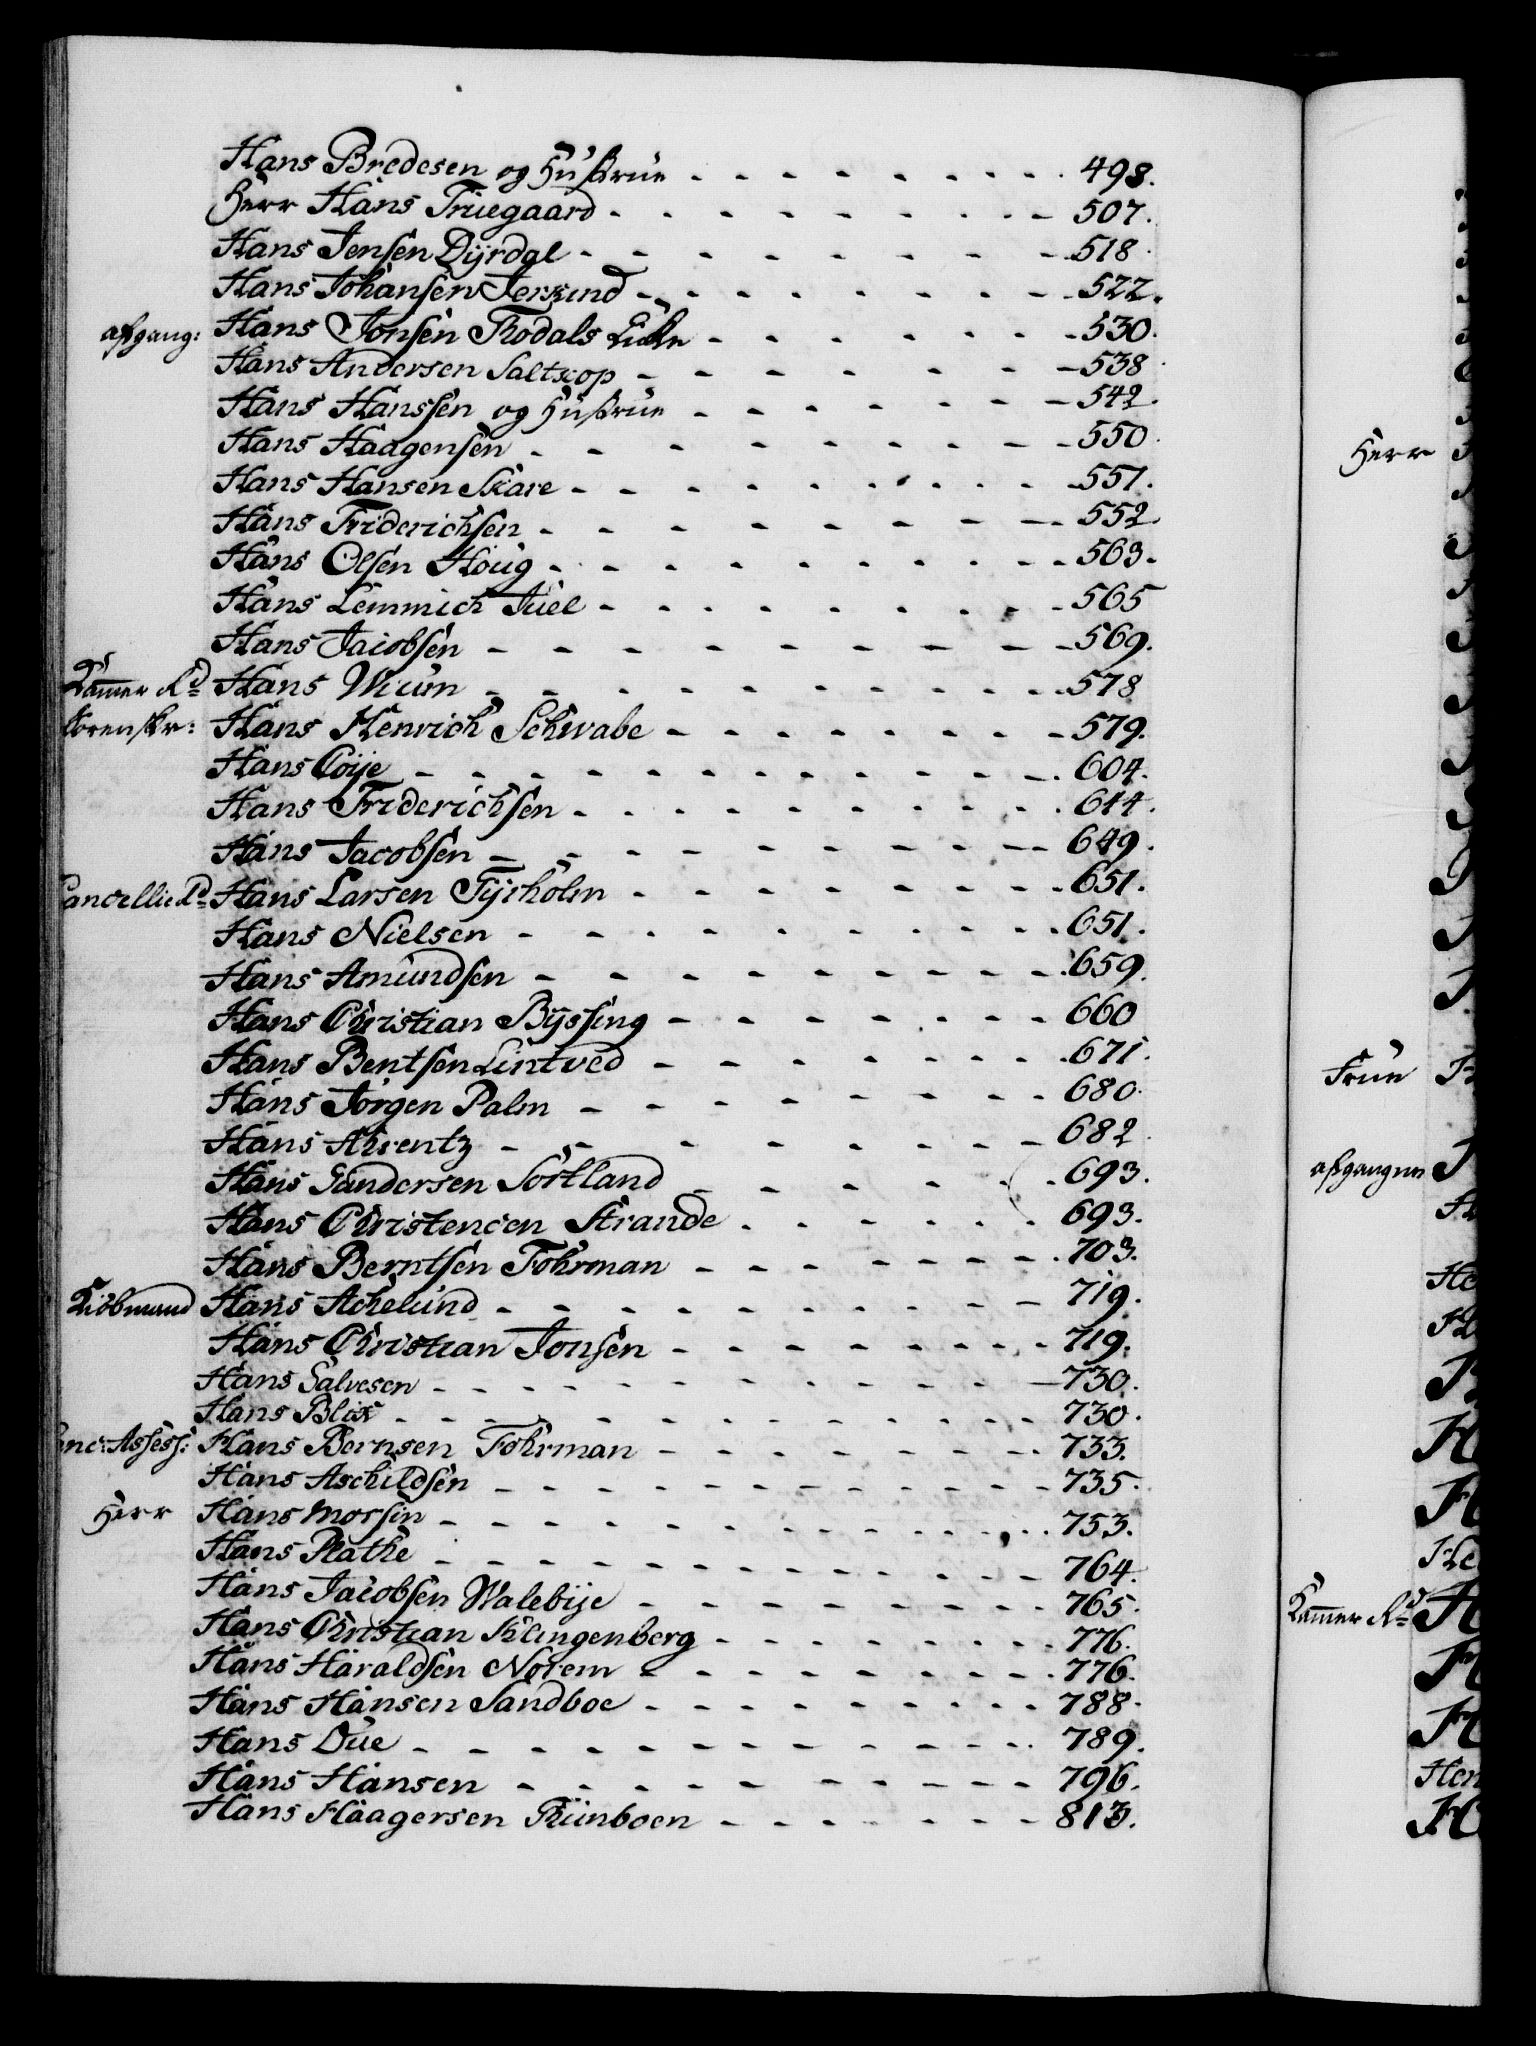 Hans Bredesen og Hustrue - - - - - - - - - 498.
Herr Hans Truegaard - - - - - - - - - 507.
Hans Jensen Dÿrdal - - - - - - - - - 518.
Hans Johansen Jerkind - - - - - - - - 522.
afgang: Hans Jonsen Rodals Enke - - - - - - 530.
Hans Andersen Saltkop - - - - - - - 538
Hans Hanssen og Hustrue - - - - - - - 542.
Hans Haagensen - - - - - - - - - 550.
Hans Hansen Skare - - - - - - - - - 551.
Hans Friderichsen - - - - - - - - - 552.
Hans Olsen Houg - - - - - - - - - 563.
Hans Lemmich Juel - - - - - - - - 565
Hans Jacobsen - - - - - - - - - 569.
Kammer Rd Hans Wium - - - - - - - - - 578
Sorenskr: Hans Henrich Schwabe - - - - - - - 579.
Hans Coÿe - - - - - - - - - - 604.
Hans Friderichsen - - - - - - - - - 644.
Hans Jacobsen - - - - - - - - - 649.
Cancellie Rd Hans Larsen Tÿrholm - - - - - - - 651.
Hans Nielsen - - - - - - - - - 651.
Hans Amundsen - - - - - - - - - 659.
Hans Christian Bÿssing - - - - - - - 660
Hans Bentsen Lintved - - - - - - - 671.
Hans Jörgen Palm - - - - - - - - 680.
Hans Ahrentz - - - - - - - - 682.
Hans Sandersen Sortland - - - - - - 693.
Hans Christensen Strande - - - - - - 693.
Hans Berntsen Fohrman - - - - - - 703.
Kiöbmand Hans Achelund - - - - - - - - - 719.
Hans Christian Jonsen - - - - - - - 719.
Hans Salvesen - - - - - - - - - - 730.
Hans Blix - - - - - - - - - - 730.
Canc: Assess: Hans Bernsen Fohrman - - - - - - - 733.
Hans Aschildsen - - - - - - - - - 735.
Herr Hans Mossin - - - - - - - - - - 753.
Hans Plathe - - - - - - - - - - 764.
Hans Jacobsen Walebÿe - - - - - - - 765.
Hans Christian Klingenberg - - - - - - 776.
Hans Haraldsen Norem - - - - - - - 776.
Hans Hansen Sandboe - - - - - - - 788.
Hans Due - - - - - - - - - - 789.
Hans Hansen - - - - - - - - - 796.
Hans Haagersen Thunboen - - - - - - 813.
Herr
Frue
afgangne
Kammer Rd